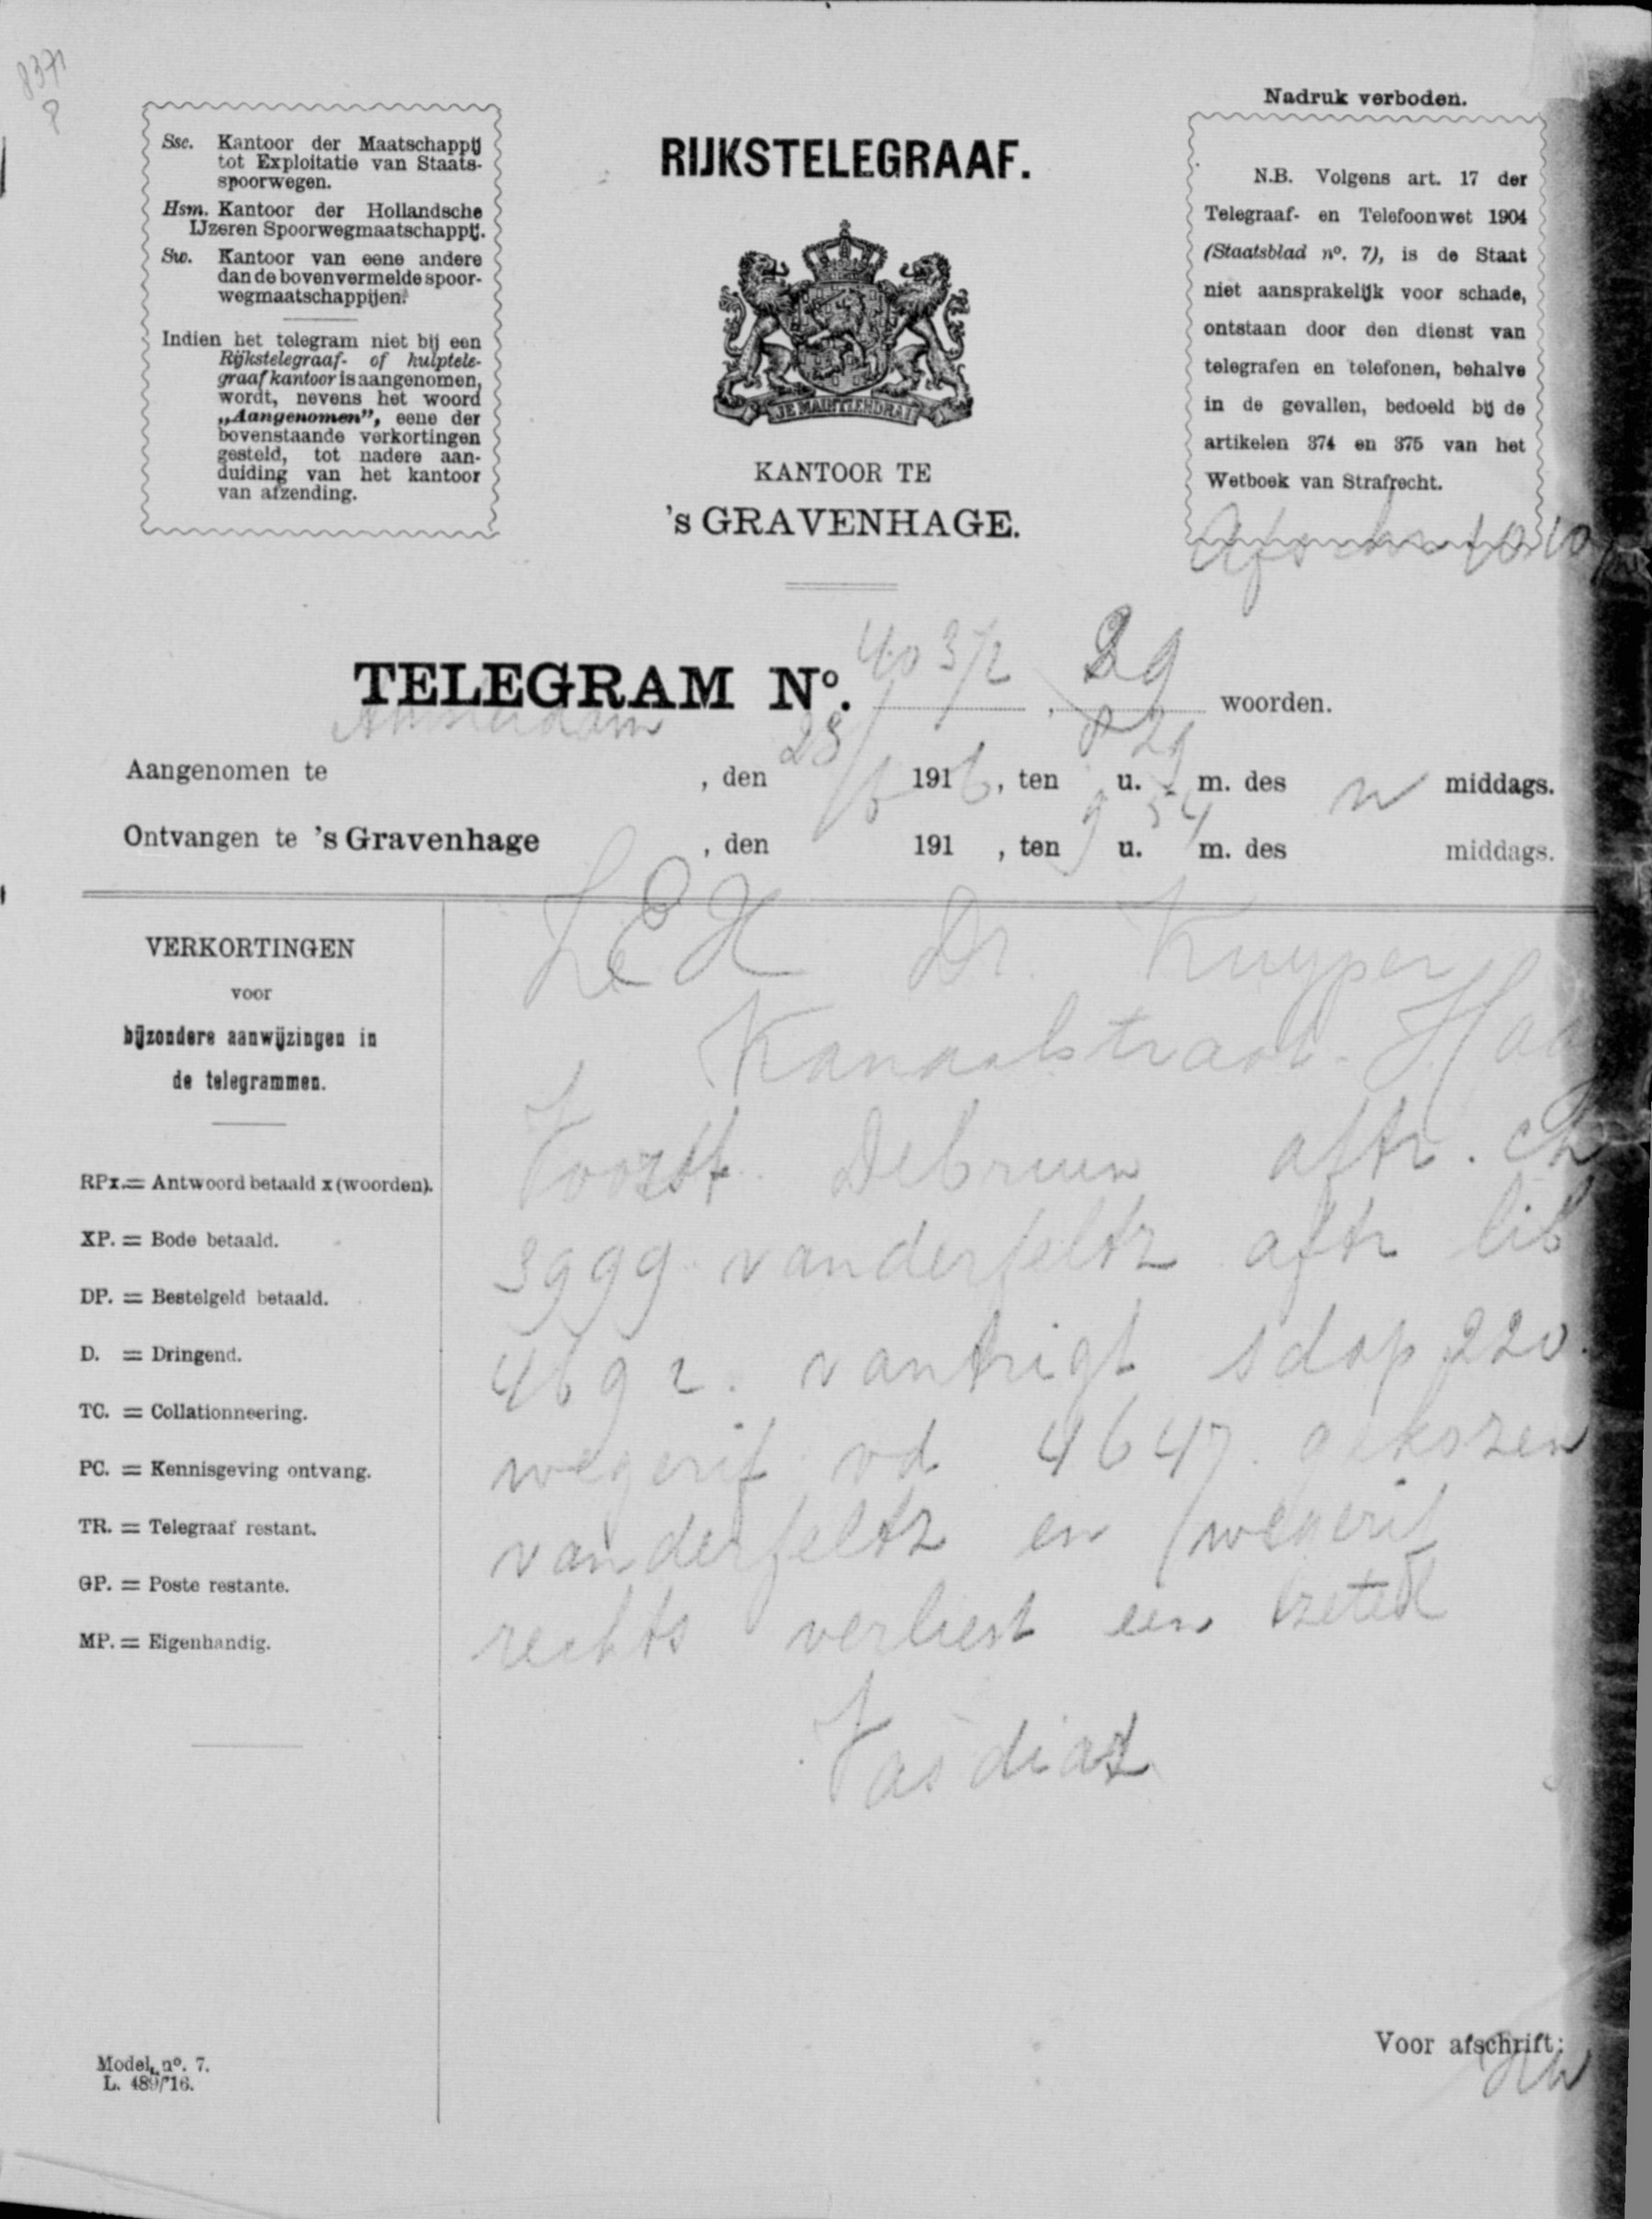 8371
P
Nadruk verboden.
Ssc. Kantoor der Maatschappij
tot Exploitatie van Staats-
spoorwegen.
Hsm. Kantoor der Hollandsche
IJzeren Spoorwegmaatschappij.
Sw. Kantoor van eene andere
dan de bovenvermelde spoor-
wegmaatschappijen.
Indien het telegram niet bij een
Rijkstelegraaf- of hulptele-
graafkantoor is aangenomen,
wordt, nevens het woord
„Aangenomen”, eene der
bovenstaande verkortingen
gesteld, tot nadere aan-
duiding van het kantoor
van afzending.
RIJKSTELEGRAAF.
JE MAINTIENDRAI
KANTOOR TE
's GRAVENHAGE.
N.B. Volgens art. 17 der
Telegraaf- en Telefoonwet 1904
(Staatsblad nº. 7), is de Staat
niet aansprakelijk voor schade,
ontstaan door den dienst van
telegrafen en telefonen, behalve
in de gevallen, bedoeld bij de
artikelen 374 en 375 van het
Wetboek van Strafrecht.
10 10
TELEGRAM Nº. 40372, 29 woorden.
Aangenomen te Amsterdam, den 28/6 1916, ten 8 u. 29 m. des n middags.
Ontvangen te 's Gravenhage, den 191, ten 9 u. 54 m. des middags.
VERKORTINGEN
voor
bijzondere aanwijzingen in
de telegrammen.
RPx. = Antwoord betaald x (woorden).
XP. = Bode betaald.
DP. = Bestelgeld betaald.
D. = Dringend.
TC. = Collationneering.
PC. = Kennisgeving ontvang.
TR. = Telegraaf restant.
GP. = Poste restante.
MP. = Eigenhandig.
Dr. Kuyper
Kanaalstraat - Haag
Voorst Debruin aftr. ch
3999 vanderfeltz aftr lib
4692. vantrigt sdap 220.
wegerif vd 4647. gekozen
vanderfeltz en wegerif
rechts verliest een zetel
Vasdiaz
Voor afschrift:
Model nº. 7.
L. 489/'16.